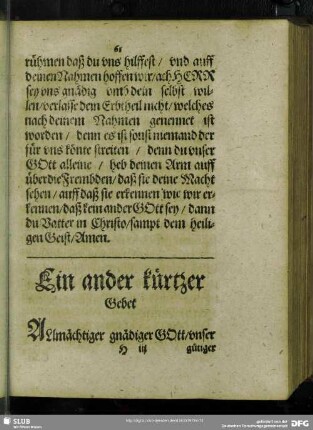 61
rühmen daß du vns hilffest / vnd auff
deinen Nahmen hoffen wir / ach HERR
sey vns gnädig vmb dein selbst wil-
len / verlasse dein Erbtheil nicht / welches
nach deinem Nahmen genennet ist
worden / denn es ist sonst niemand der
für vns könte streiten / denn du vnser
GOtt alleine / heb deinen Arm auff
über die Frembden / daß sie deine Macht
sehen / auff daß sie erkennen wie wir er-
kennen / daß kein ander GOtt sey / dann
du Vatter in Christo / sampt dem heili-
gen Geist / Amen.
Ein ander kürtzer
Gebet
ALlmächtiger gnädiger GOtt / vnser
H iij
gütiger
SLUB
DFG